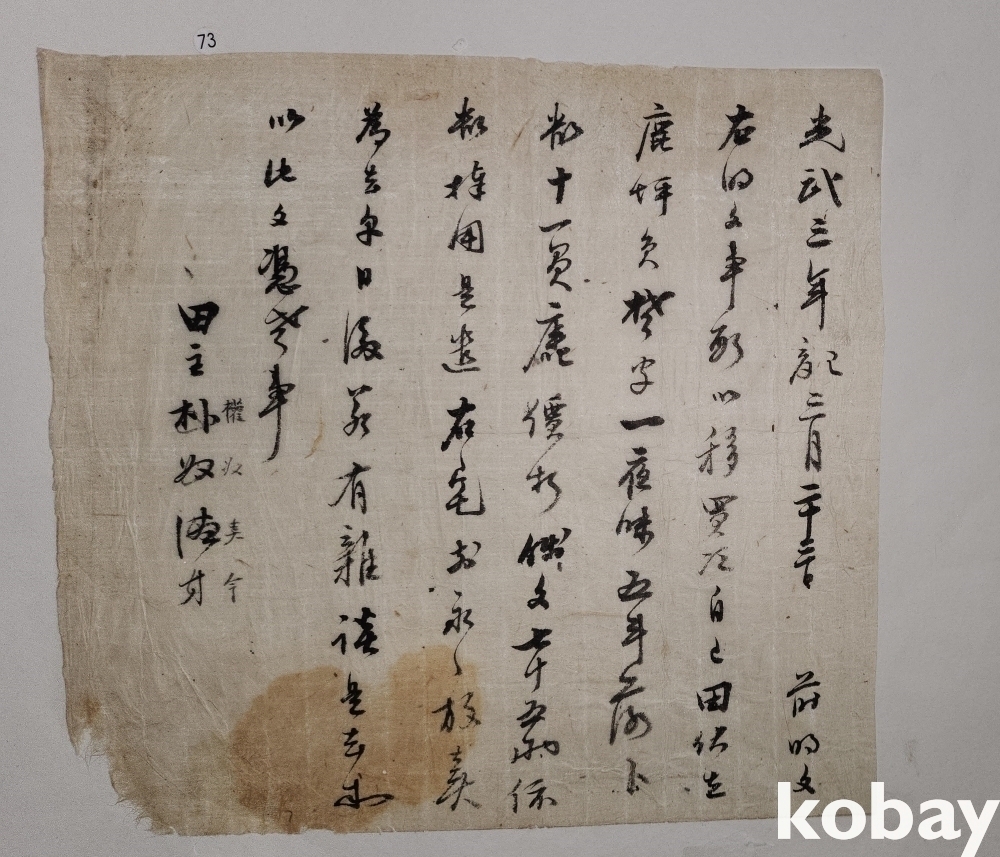 73
光武三年己亥三月 前明文
右明文事段以移買次自己田伏在
鹿坪員楚字一夜味五斗落卜
數十一負㐣價折錢文七十五兩依
數捧用是遣右宅前永々放賣
為去乎日後若有雜談是去等
以此文憑考事
權奴 今
田主朴奴德才
kobay